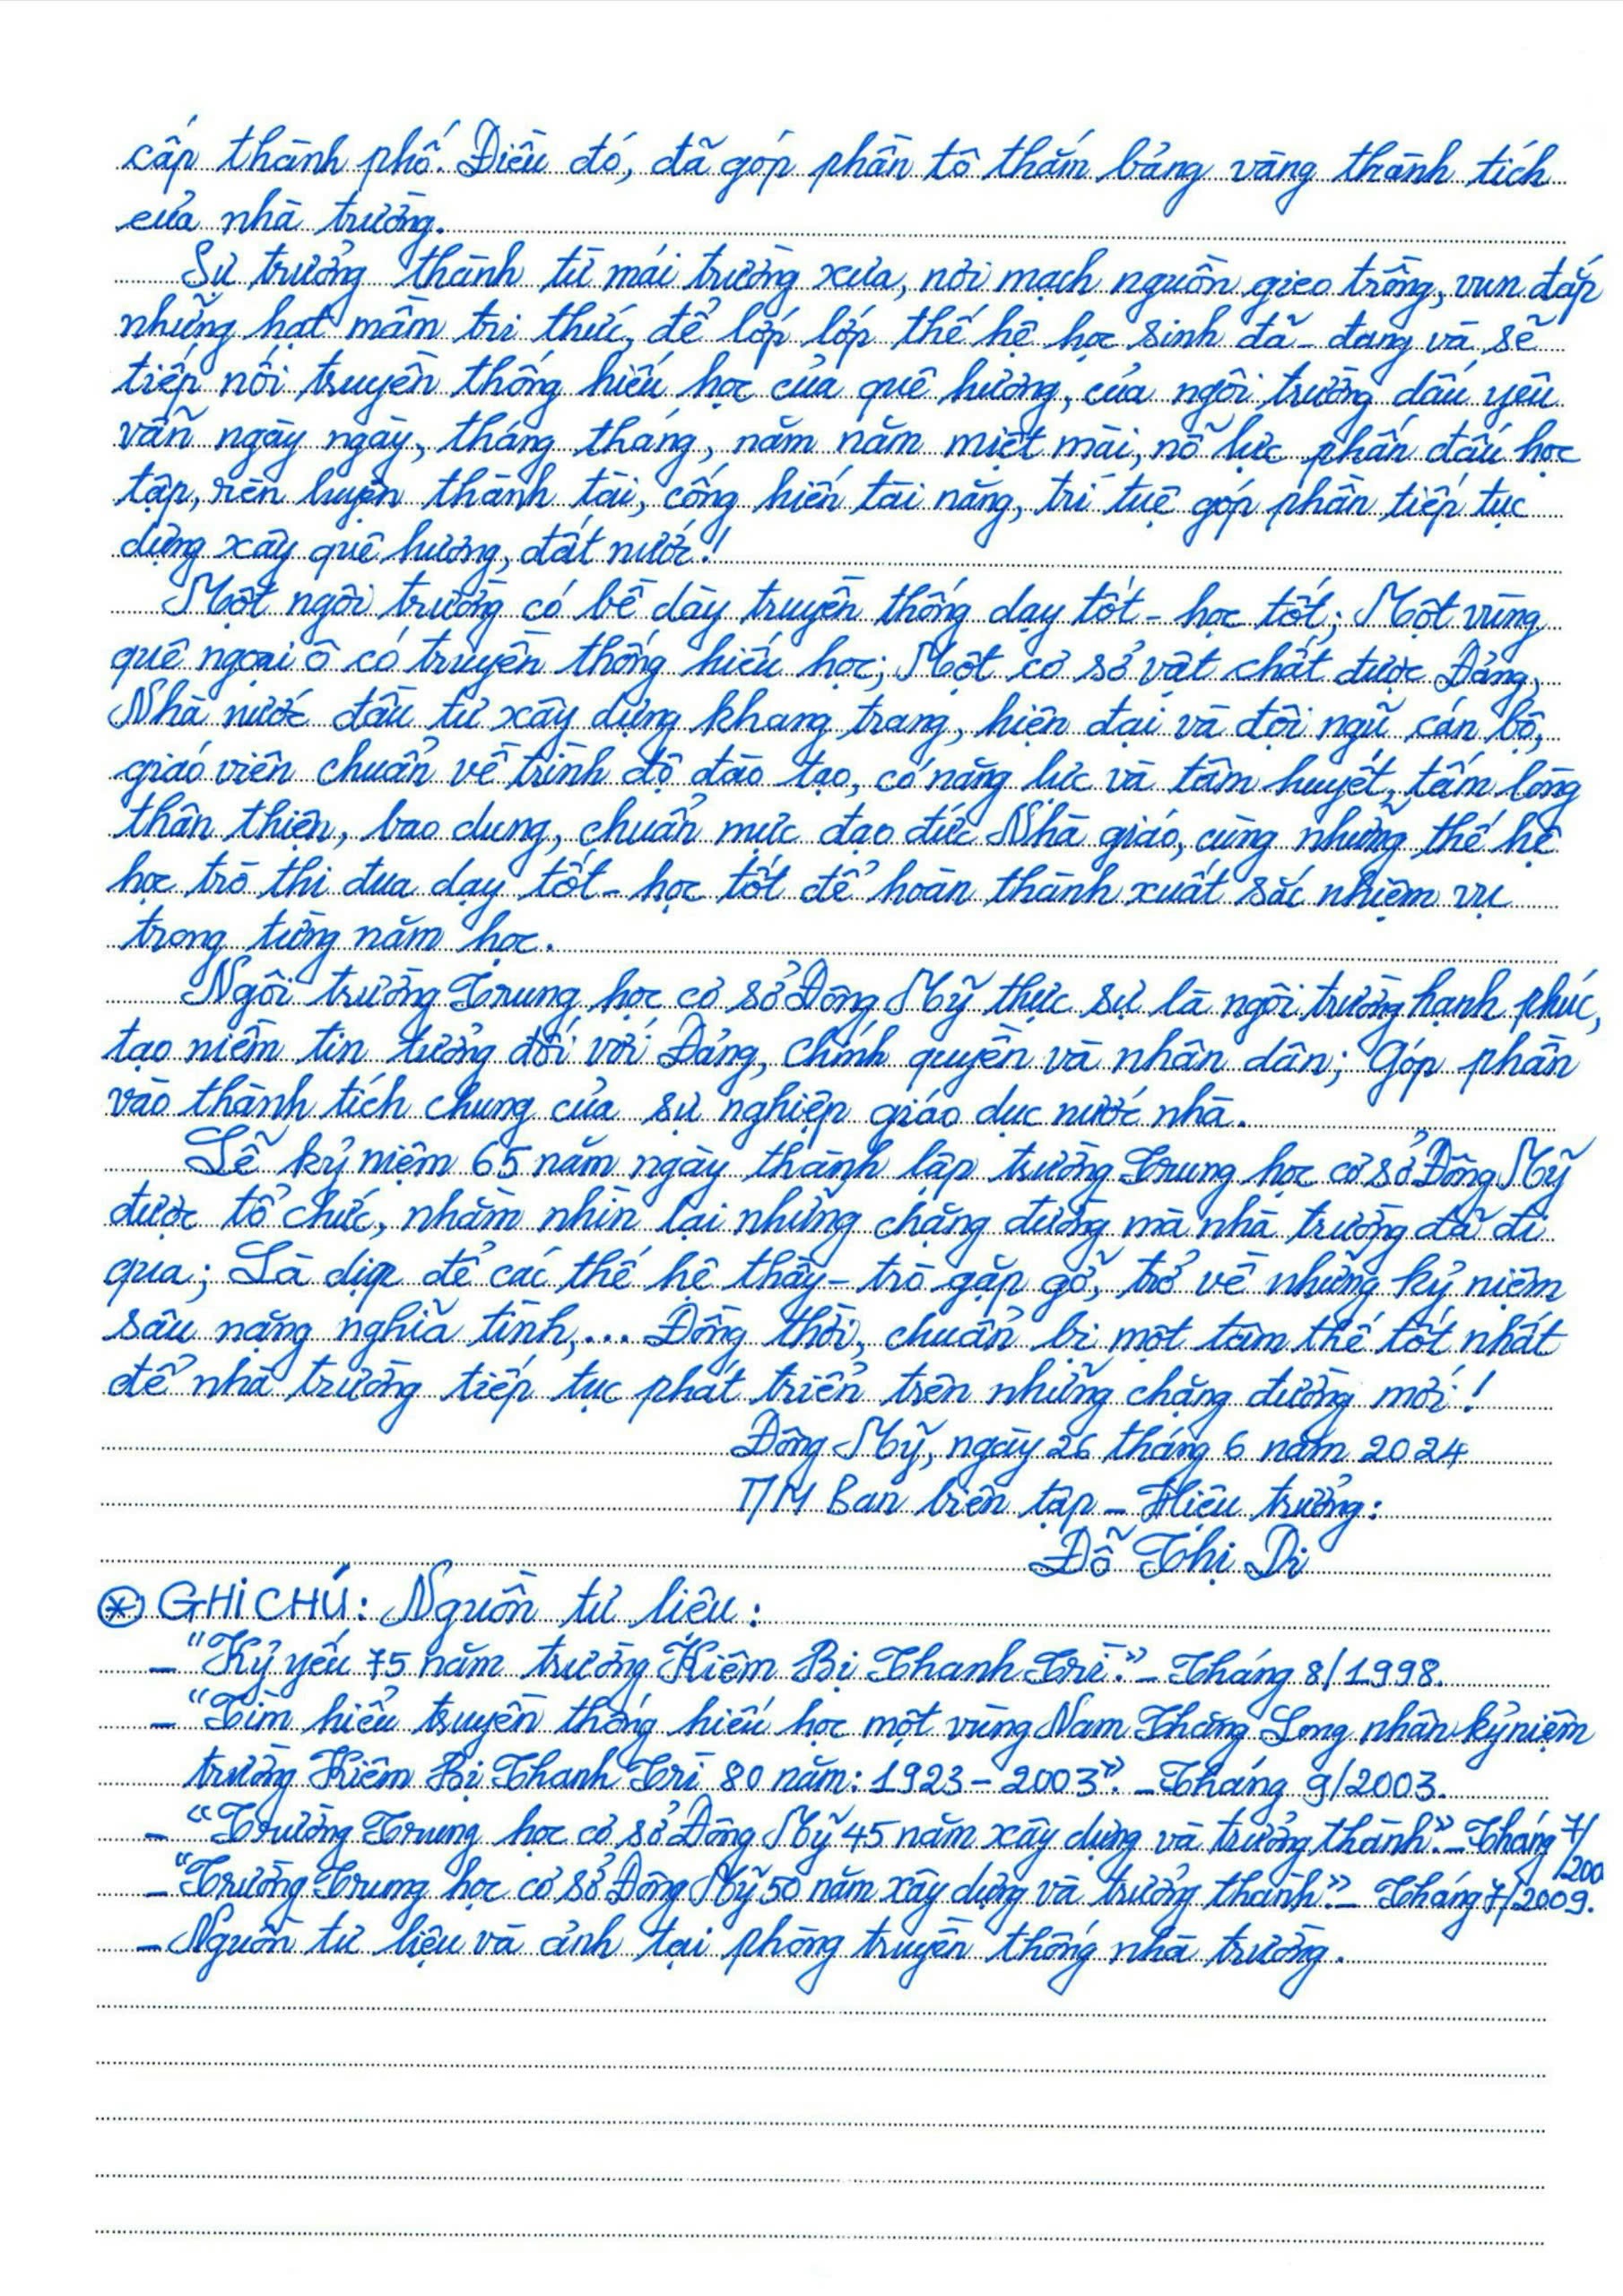 cấp thành phố. Điều đó, đã góp phần tô thắm bảng vàng thành tích
của nhà trường.
Sự trưởng thành từ mái trường xưa, nơi mạch nguồn gieo trồng, vun đắp
những hạt mầm tri thức, để lớp lớp thế hệ học sinh đã - đang và sẽ
tiếp nối truyền thống hiếu học của quê hương, của ngôi trường dấu yêu
vẫn ngày ngày, tháng tháng, năm năm miệt mài, nỗ lực phấn đấu học
tập, rèn luyện thành tài, cống hiến tài năng, trí tuệ góp phần tiếp tục
dựng xây quê hương, đất nước!
Một ngôi trường có bề dày truyền thống dạy tốt - học tốt; Một vùng
quê ngoại ô có truyền thống hiếu học; Một cơ sở vật chất được Đảng,
Nhà nước đầu tư xây dựng khang trang, hiện đại và đội ngũ cán bộ,
giáo viên chuẩn về trình độ đào tạo, có năng lực và tâm huyết, tấm lòng
thân thiện, bao dung, chuẩn mực đạo đức Nhà giáo, cùng những thế hệ
học trò thi đua dạy tốt - học tốt để hoàn thành xuất sắc nhiệm vụ
trong từng năm học.
Ngôi trường Trung học cơ sở Đông Mỹ thực sự là ngôi trường hạnh phúc,
tạo niềm tin tưởng đối với Đảng, chính quyền và nhân dân; Góp phần
vào thành tích chung của sự nghiệp giáo dục nước nhà.
Lễ kỷ niệm 65 năm ngày thành lập trường Trung học cơ sở Đông Mỹ
được tổ chức, nhằm nhìn lại những chặng đường mà nhà trường đã đi
qua; Là dịp để các thế hệ thầy - trò gặp gỡ, trở về những kỷ niệm
sâu nặng nghĩa tình,... Đồng thời, chuẩn bị một tâm thế tốt nhất
để nhà trường tiếp tục phát triển trên những chặng đường mới!
Đông Mỹ, ngày 26 tháng 6 năm 2024
T/M Ban biên tập - Hiệu trưởng:
Đỗ Thị Di
* GHI CHÚ: Nguồn tư liệu:
- "Kỷ yếu 75 năm trường Kiêm Bị Thanh Trì". - Tháng 8/1998.
- "Tìm hiểu truyền thống hiếu học một vùng Nam Thăng Long nhân kỷ niệm
trường Kiêm Bị Thanh Trì 80 năm: 1923 - 2003". - Tháng 9/2003.
- "Trường Trung học cơ sở Đông Mỹ 45 năm xây dựng và trưởng thành". - Tháng 7/
200
- "Trường Trung học cơ sở Đông Mỹ 50 năm xây dựng và trưởng thành". - Tháng 7/2009.
- Nguồn tư liệu và ảnh tại phòng truyền thống nhà trường.